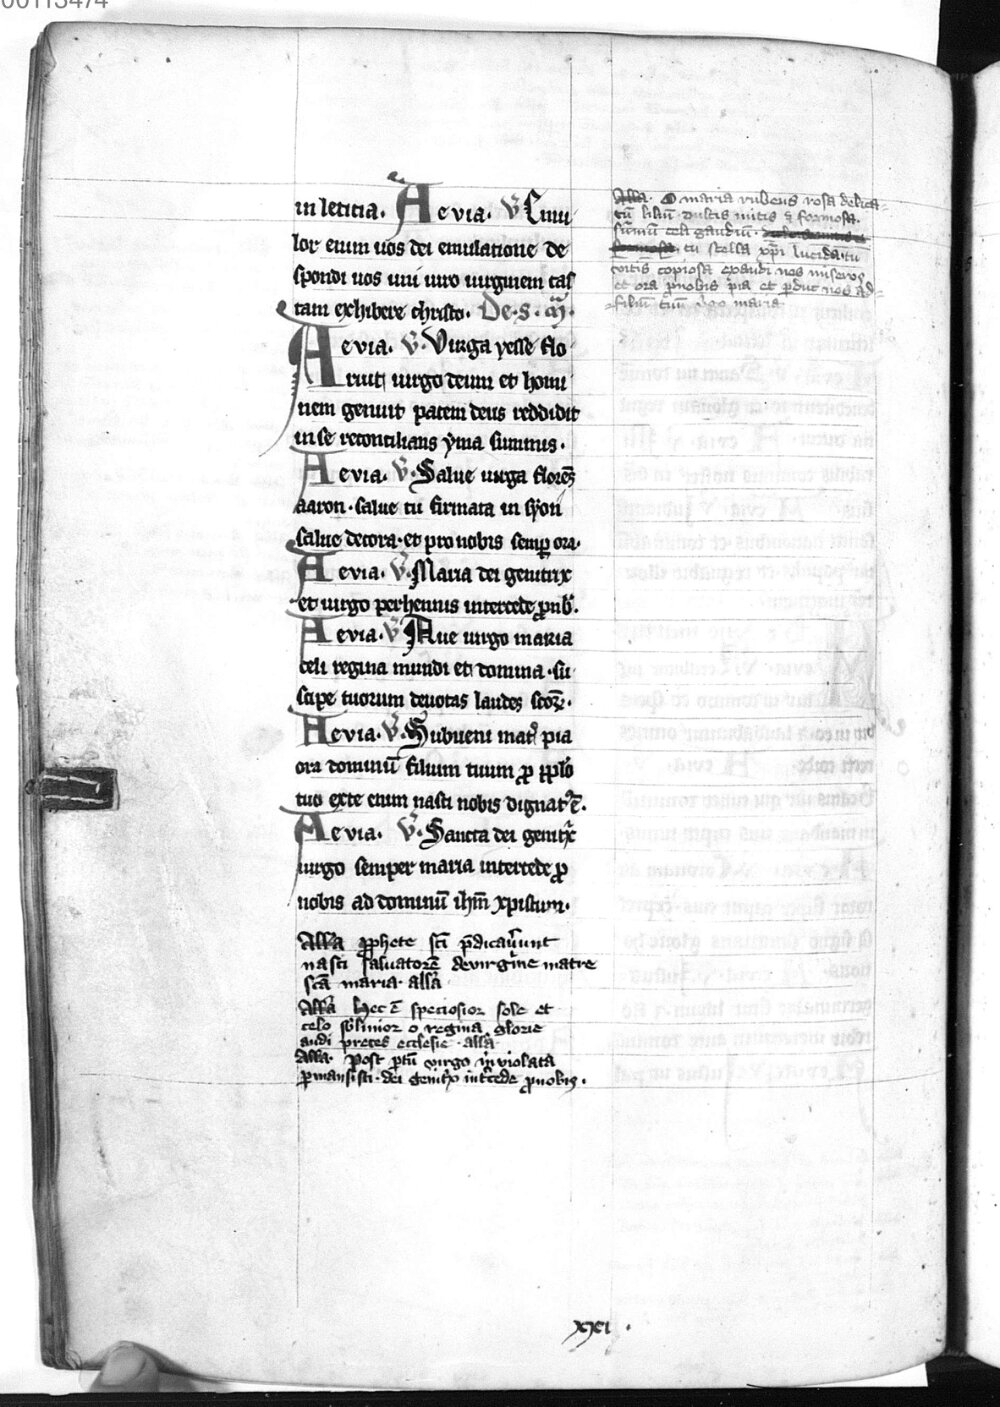 00113474
in leticia. Aevia. V̄ Emu
lor enim uos dei emulatione de
spondi uos uni uiro uirginem cas
tam exhibere christo. De. s. m̄.
Aevia. V̄. Virga yesse flo
ruit uirgo deum et homi
nem genuit pacem deus reddidit
in se reconcilians yma summis.
Aevia. V̄. Salue uirga florēs
aaron. salue tu firmata in syon
salue decora. et pro nobis semꝑ ora.
Aevia. V̄. Maria dei genitrix
et uirgo perhennis intercede ꝓ nob̄.
Aevia. V̄ Aue uirgo maria
celi regina mundi et domina. su
scipe tuorum deuotas laudes scōꝝ.
Aevia. V̄. Subueni mat̄ pia
ora dominū filium tuum ꝓ pplo
tuo ex te enim nasci nobis dignat᷒ ē.
Aevia. V̄. Sancta dei genitx̄
uirgo semper maria intercede ꝓ
nobis ad dominū ihm̄ xpistum.
All̄a ꝓphete sc̄i p̄dicau̅unt
nasci saluatorē de virgi̅ne matre
sc̄a maria. all̄a
All̄a Hec ē speciosior sole et
celo sb̄limior o regina glorie
audi preces ecclesie. all̄a
All̄a. Post ꝑtū virgo īviolata
ꝑmansisti. dei genit̄x int̄cede ꝓ nobis.
All̄a. O maria rubens rosa delica
tū liliū dulcis mitis & formosa.
sūmū celi gaudiū.
tu stella xp̄i lucida. tu
copiosa exaudi nos miseros
et ora ꝓ nobis pia et ꝑduc nos ad
filiū tuū virgo maria
xxi.